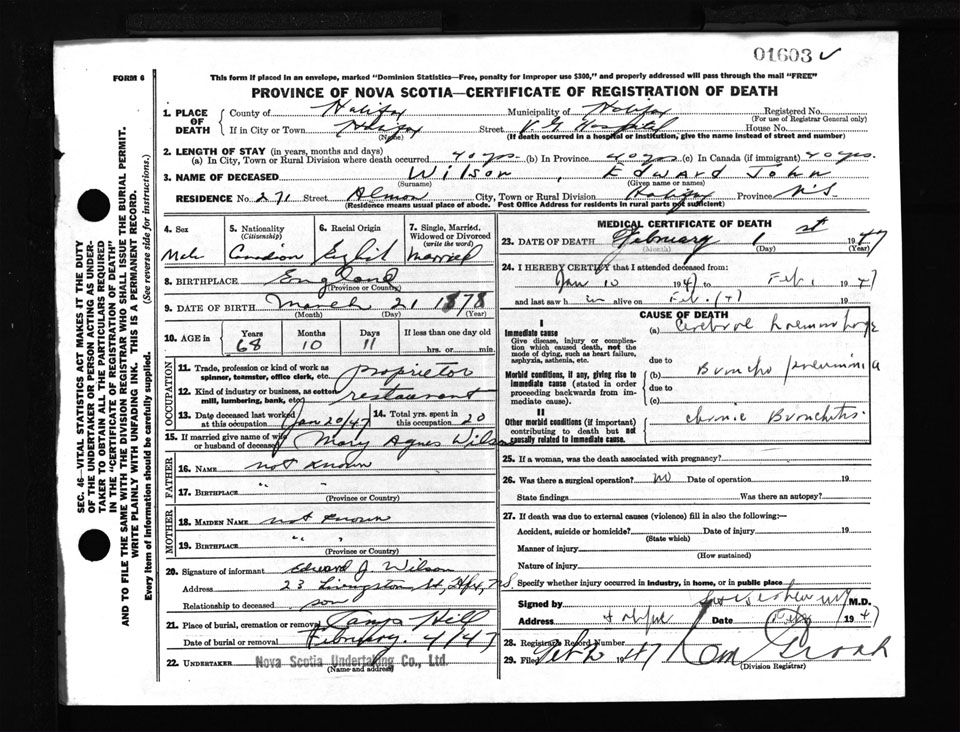 01603 ✓
FORM 6
This form if placed in an envelope, marked "Dominion Statistics—Free, penalty for improper use $300," and properly addressed will pass through the mail "FREE"
PROVINCE OF NOVA SCOTIA—CERTIFICATE OF REGISTRATION OF DEATH
SEC. 46—VITAL STATISTICS ACT MAKES IT THE DUTY
OF THE UNDERTAKER OR PERSON ACTING AS UNDER-
TAKER TO OBTAIN ALL THE PARTICULARS REQUIRED
IN THE "CERTIFICATE OF REGISTRATION OF DEATH"
AND TO FILE THE SAME WITH THE DIVISION REGISTRAR WHO SHALL ISSUE THE BURIAL PERMIT.
WRITE PLAINLY WITH UNFADING INK. THIS IS A PERMANENT RECORD.
Every item of information should be carefully supplied. (See reverse side for instructions.)
1. PLACE OF DEATH
County of Halifax Municipality of Halifax Registered No.
(For use of Registrar General only)
If in City or Town Halifax Street V.G. Hospital House No.
(Name) (If death occurred in a hospital or institution, give the name instead of street and number)
2. LENGTH OF STAY (in years, months and days)
(a) In City, Town or Rural Division where death occurred 40 yrs. (b) In Province 40 yrs (c) In Canada (if immigrant) 40 yrs.
3. NAME OF DECEASED Wilson, Edward John
(Surname) (Given name or names)
RESIDENCE No. 271 Street Almon City, Town or Rural Division Halifax Province N.S.
(Residence means usual place of abode. Post Office Address for residents in rural parts not sufficient)
4. Sex
Male
5. Nationality
(Citizenship)
Canadian
6. Racial Origin
English
7. Single, Married, Widowed or Divorced
(write the word)
Married
8. BIRTHPLACE England
(Province or Country)
9. DATE OF BIRTH March 21 1878
(Month) (Day) (Year)
10. AGE in
Years Months Days If less than one day old
68 10 11 hrs. or min.
OCCUPATION
11. Trade, profession or kind of work as
spinner, teamster, office clerk, etc. Proprietor
12. Kind of industry or business, as cotton
mill, lumbering, bank, etc. restaurant
13. Date deceased last worked
at this occupation Jan 20/47
14. Total yrs. spent in
this occupation 20
15. If married give name of wife
or husband of deceased Mary Agnes Wilson
FATHER
16. Name not known
17. Birthplace " "
(Province or Country)
MOTHER
18. Maiden Name not known
19. Birthplace " "
(Province or Country)
20. Signature of informant Edward J. Wilson
Address 23 Livingstone St, Hfx, N.S.
Relationship to deceased son
21. Place of burial, cremation or removal Camp Hill
Date of burial or removal February 4/47
22. UNDERTAKER Nova Scotia Undertaking Co., Ltd.
(Name and address)
MEDICAL CERTIFICATE OF DEATH
23. DATE OF DEATH February 1st 1947
(Month) (Day) (Year)
24. I HEREBY CERTIFY that I attended deceased from:
Jan 10 1947 to Feb. 1 1947
and last saw h im alive on Feb. 1 47 19
CAUSE OF DEATH
I
Immediate cause
Give disease, injury or complica-
tion which caused death, not the
mode of dying, such as heart failure,
asphyxia, asthenia, etc.
(a) Cerebral haemorrhage
due to
Morbid conditions, if any, giving rise to
immediate cause (stated in order
proceeding backwards from im-
mediate cause).
(b) Broncho pneumonia
due to
(c)
II
Other morbid conditions (if important)
contributing to death but not
causally related to immediate cause.
chronic Bronchitis
25. If a woman, was the death associated with pregnancy?
26. Was there a surgical operation? no Date of operation 19
State findings Was there an autopsy?
27. If death was due to external causes (violence) fill in also the following:—
Accident, suicide or homicide? Date of injury 19
(State which)
Manner of injury
(How sustained)
Nature of injury
Specify whether injury occurred in industry, in home, or in public place
Signed by M.D.
Address Halifax Date Feb 1947
28. Registrar's Record Number
29. Filed Feb 2 1947
(Division Registrar)